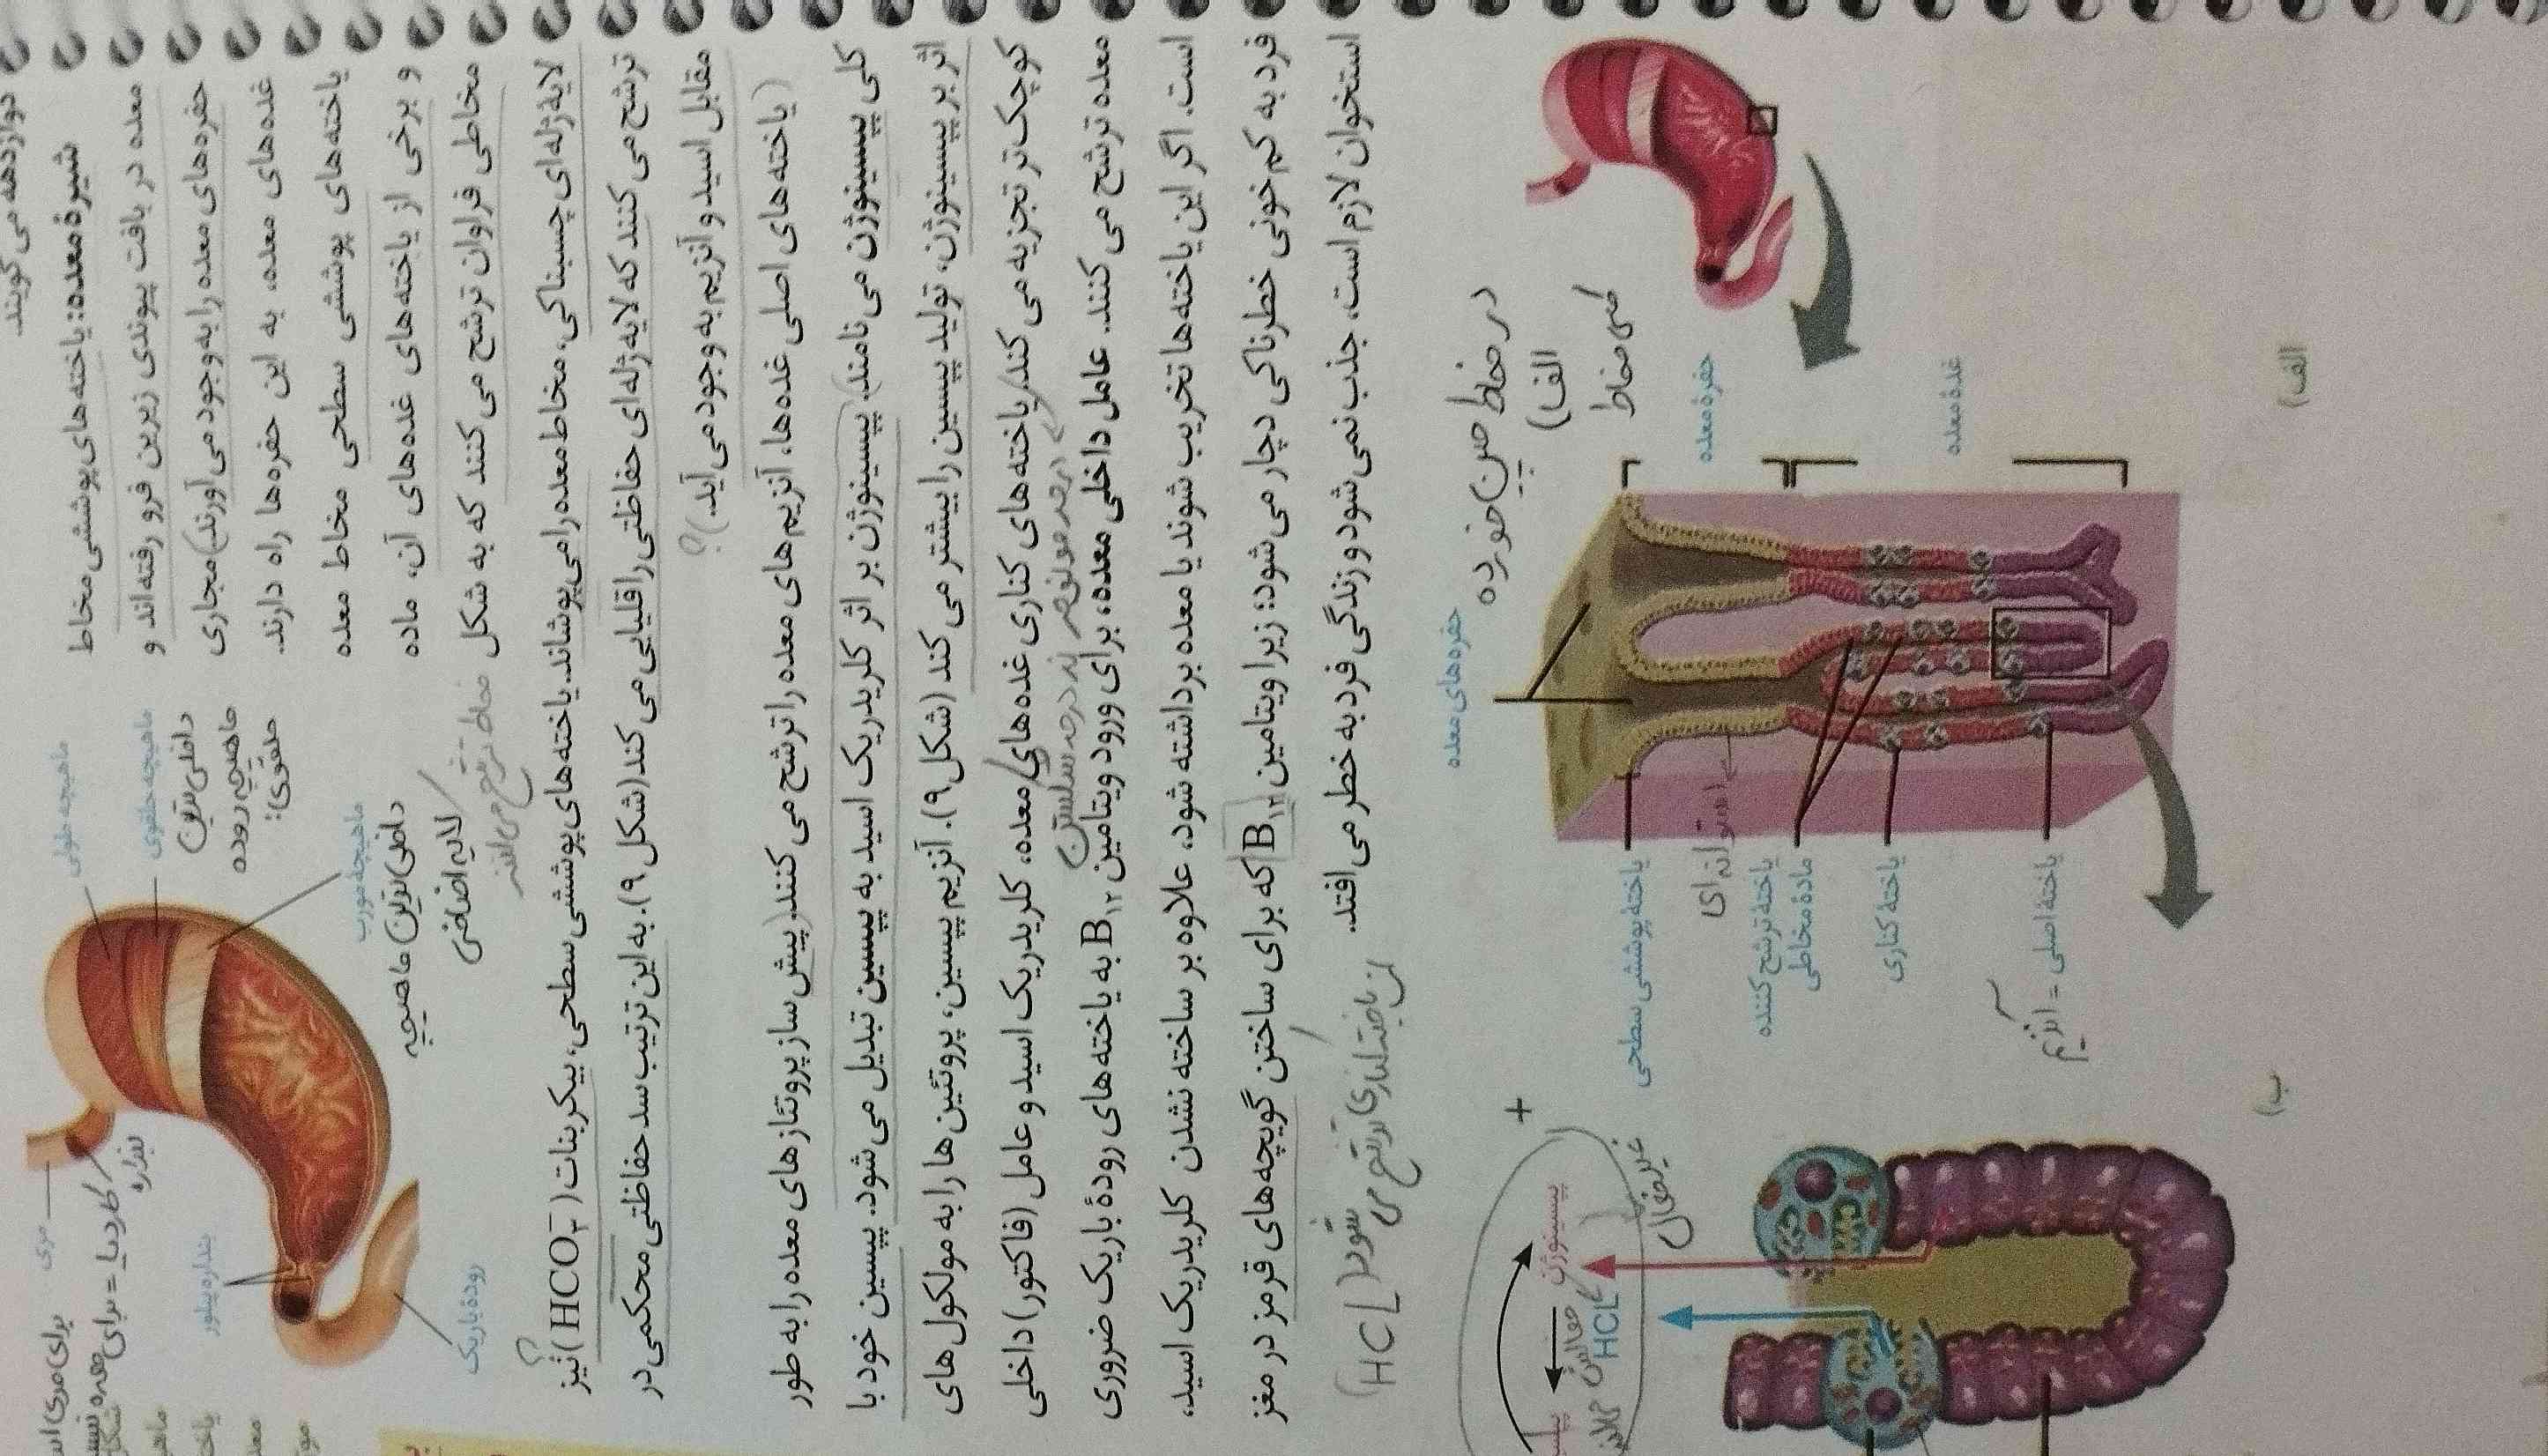 دوازدهه می‌گویند.
شیرهٔ معده: یاخته‌های پوششی مخاط
معده در بافت پیوندی زیرین فرو رفته‌اند و
حفره‌های معده را به‌وجود می‌آورند) مجاری
غده‌های معده، به این حفره‌ها راه دارند.
یاخته‌های پوششی سطحی مخاط معده
و برخی از یاخته‌های غده‌های آن، ماده
مخاطی فراوان ترشح می‌کنند که به شکل
لایهٔ ژله‌ای چسبناکی، مخاط معده را می‌پوشاند. یاخته‌های پوششی سطحی، بیکربنات (HCO₃⁻) نیز
ترشح می‌کنند که لایه ژله‌ای حفاظتی را قلیایی می‌کند (شکل ۹). به این ترتیب سد حفاظتی محکمی در
مقابل اسید و آنزیم به وجود می‌آید.) ؟
(یاخته‌های اصلی غده‌ها، آنزیم‌های معده را ترشح می‌کنند. (پیش‌ساز پروتئازهای معده را به طور
کلی پپسینوژن می‌نامند.) پپسینوژن بر اثر کلریدریک اسید به پپسین تبدیل می‌شود. پپسین خود با
اثر بر پپسینوژن، تولید پپسین را بیشتر می‌کند (شکل ۹). آنزیم پپسین، پروتئین‌ها را به مولکول‌های
کوچک‌تر تجزیه می‌کند. یاخته‌های کناری غده‌های معده، کلریدریک اسید و عامل (فاکتور) داخلی
معده ترشح می‌کنند. عامل داخلی معده، برای ورود ویتامین B₁₂ به یاخته‌های رودهٔ باریک ضروری
است. اگر این یاخته‌ها تخریب شوند یا معده برداشته شود، علاوه بر ساخته نشدن کلریدریک اسید،
فرد به کم‌خونی خطرناکی دچار می‌شود؛ زیرا ویتامین B₁₂ که برای ساختن گویچه‌های قرمز در مغز
استخوان لازم است، جذب نمی‌شود و زندگی فرد به خطر می‌افتد.
ماهیچه طولی
ماهیچه حلقوی
داخلی‌ترین
ماهیچه روده
حلقوی:
ماهیچهٔ مورب
داخلی‌ترین ماهیچه
لایه اضافی
مری
بنداره
کاردیا = برای
بنداره پیلور
رودهٔ باریک
(HCL)
در مخاط چین خورده
(الف
حفرهٔ معده
غدهٔ معده
حفره‌های معده
یاختهٔ پوششی سطحی
استوانه‌ای
یاختهٔ ترشح‌کننده
مادهٔ مخاطی
یاختهٔ کناری
یاختهٔ اصلی = آنزیم
الف)
ب)
+
پپسینوژن
غیرفعال
HCL